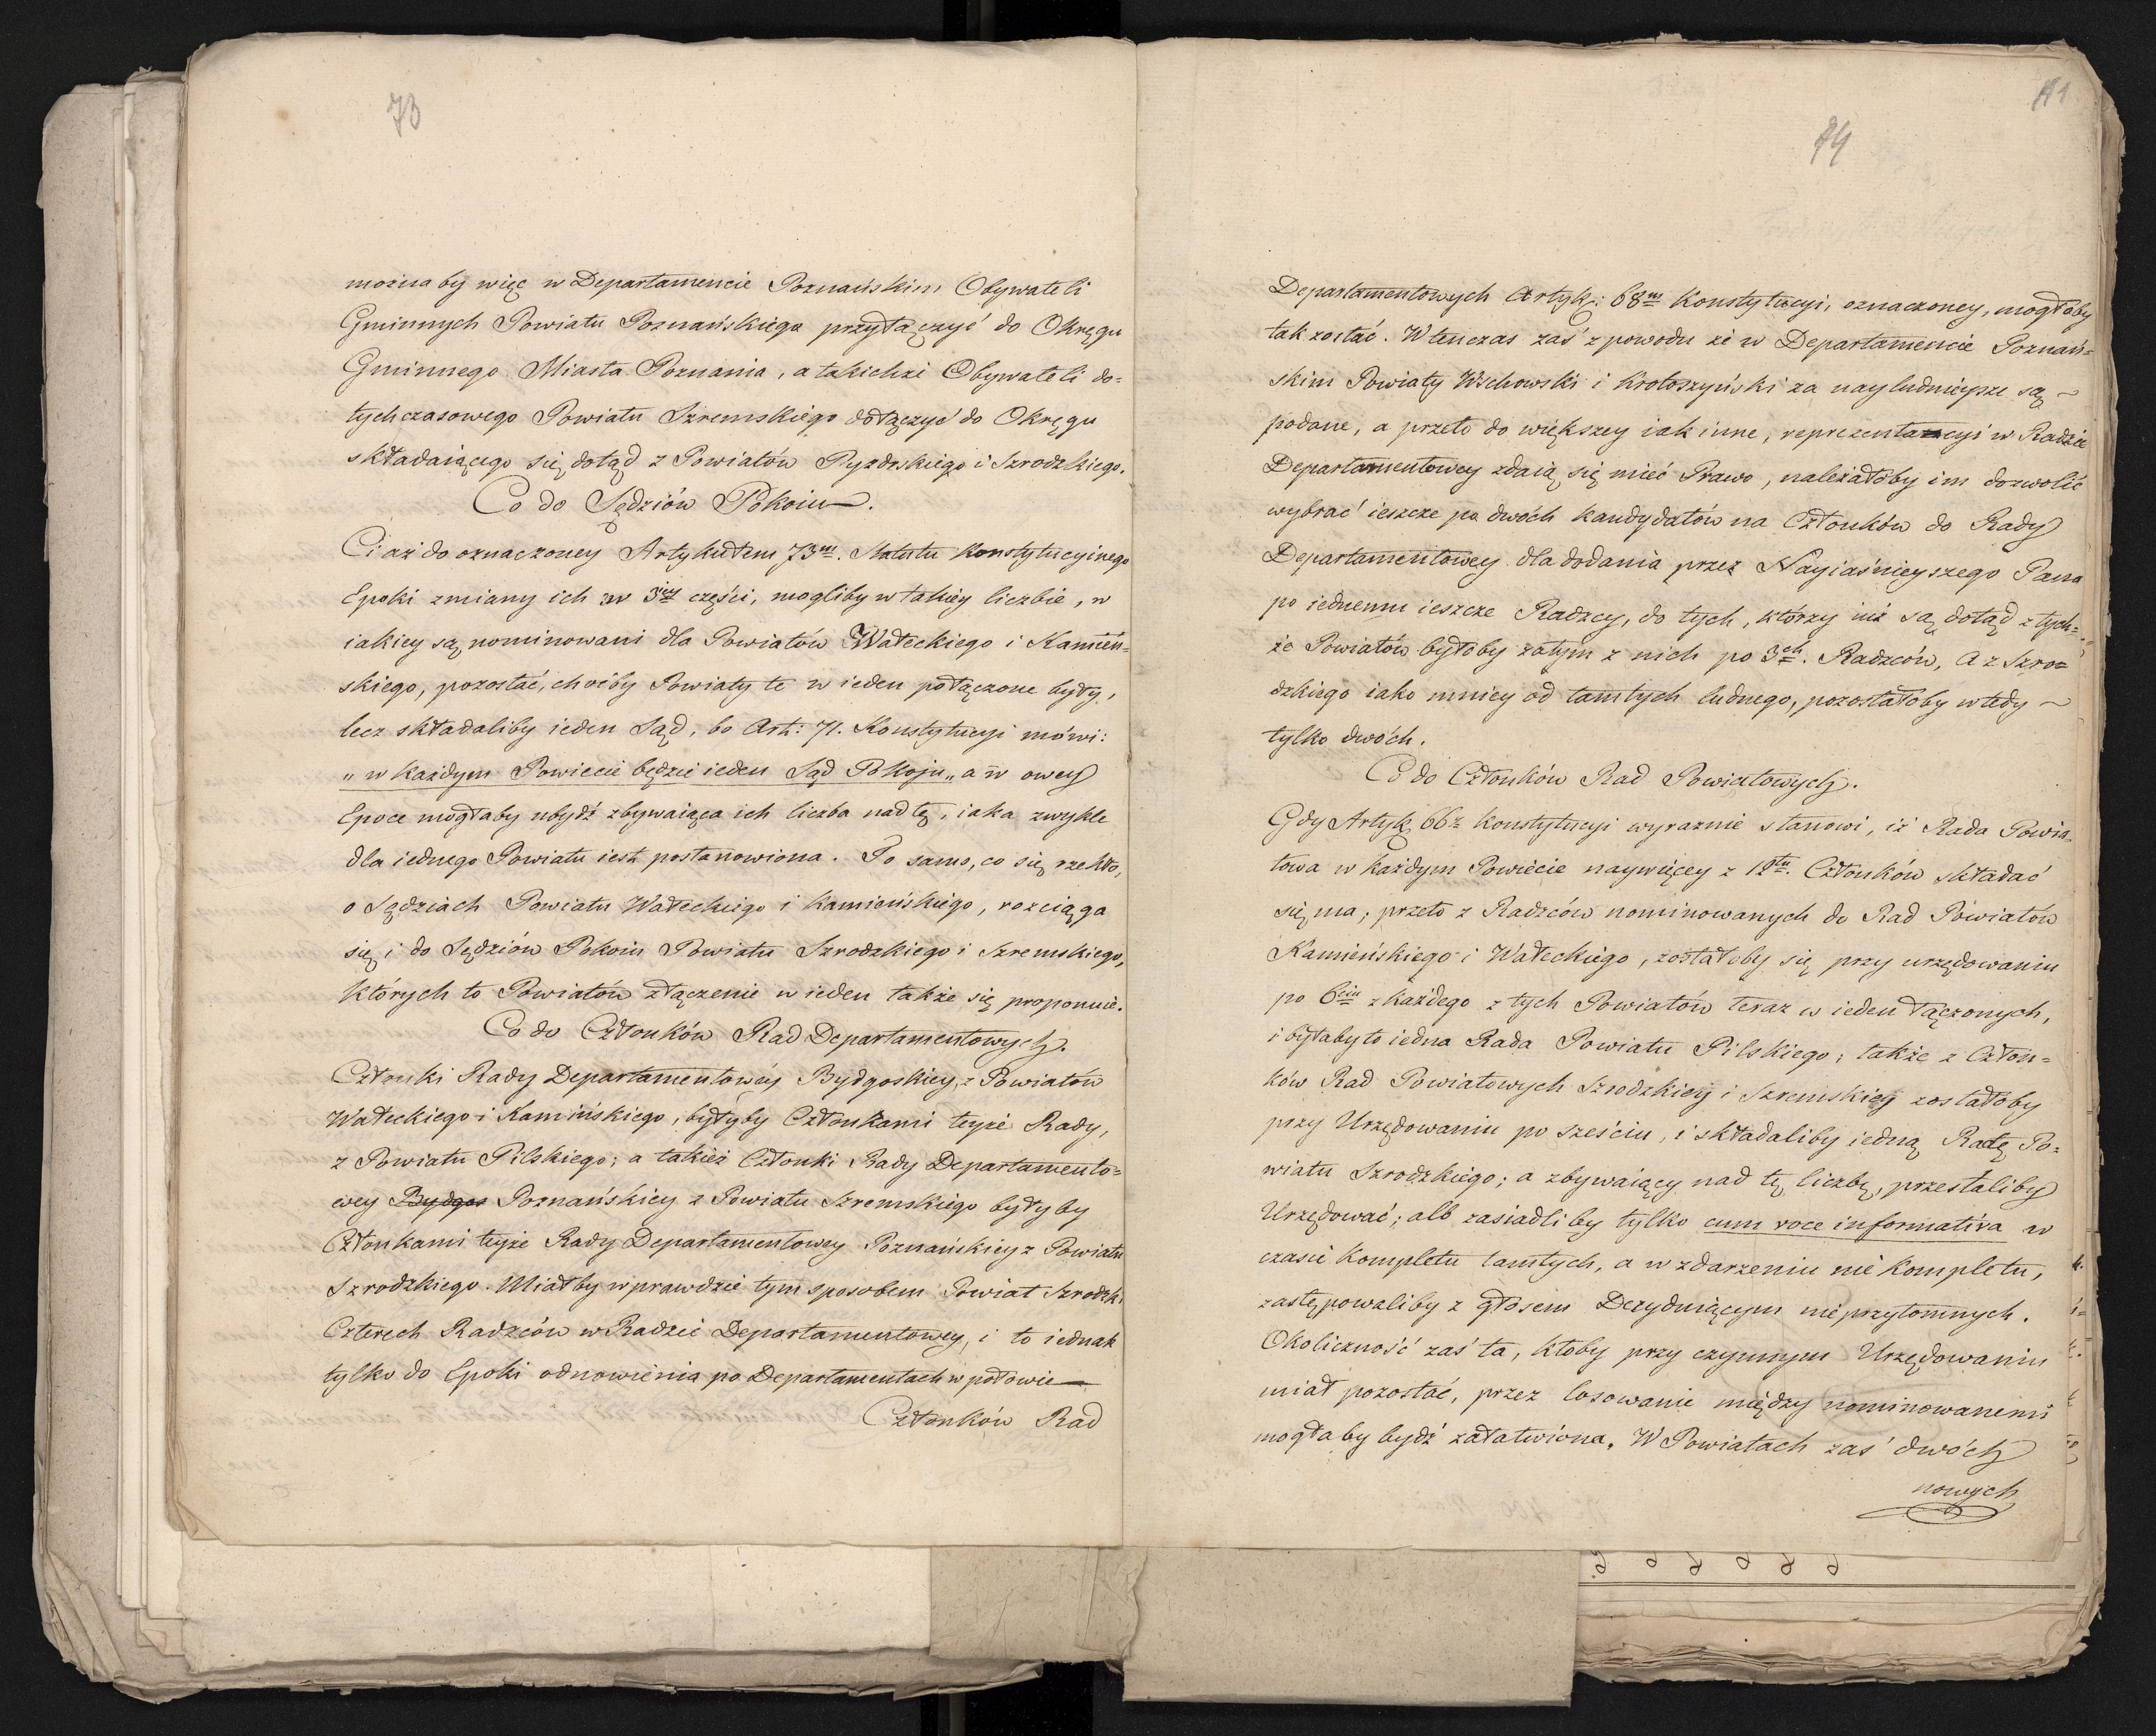 73
możnaby więc w Departamencie Poznańskim Obywateli
Gminnych Powiatu Poznańskiego przyłączyć do Okręgu
Gminnego Miasta Poznania, a takichże Obywateli do=
tychczasowego Powiatu Szremskiego dołączyć do Okręgu
składaiącego się dotąd z Powiatów Pyzdrskiego i Szrodzkiego.
Co do Sędziów Pokoiu.
Ci aż do oznaczoney Artykułem 73m. Statutu Konstytucyinego
Epoki zmiany ich w 3iey części, mogliby w takiey liczbie, w
iakiey są nominowani dla Powiatów Wałeckiego i Kamień=
skiego, pozostać, choćby Powiaty te w ieden połączone były,
lecz składaliby ieden Sąd, bo Art: 71. Konstytucyi mówi:
„w każdym Powiecie będzie ieden Sąd Pokoju„ a w owey
Epoce mogłaby ubydź zbywaiąca ich liczba nad tę, iaka zwykle
dla iednego Powiatu iest postanowiona. To samo, co się rzekło,
o Sędziach Powiatu Wałeckiego i Kamieńskiego, rozciąga
się i do Sędziów Pokoiu Powiatu Szrodzkiego i Szremskiego,
których to Powiatów złączenie w ieden także się proponuie.
Co do Członków Rad Departamentowych.
Członki Rady Departamentowey Bydgoskiey, z Powiatów
Wałeckiego i Kamińskiego, byłyby Członkami teyże Rady,
z Powiatu Pilskiego; a takież Członki Rady Departamento=
wey Bydgos Poznańskiey z Powiatu Szremskiego byłyby
Członkami teyże Rady Departamentowey Poznańskiey z Powiatu
Szrodzkiego. Miałby wprawdzie tym sposobem Powiat Szrodzki
Czterech Radzców w Radzie Departamentowey, i to iednak
tylko do Epoki odnowienia po Departamentach w połowie
Członków Rad
74
Departamentowych Artyk: 68m Konstytucyi, oznaczoney, mogłoby
tak zostać. Wtenczas zaś z powodu że w Departamencie Poznań=
skim Powiaty Wschowski i Krotoszyński za nayludnieysze są
podane, a przeto do większey iak inne, reprezentacyi w Radzie
Departamentowey zdaią się mieć Prawo, należałoby im dozwolić
wybrać ieszcze po dwóch kandydatów na Członków do Rady
Departamentowey dla dodania przez Nayiaśnieyszego Pana
po iednemu ieszcze Radzcy, do tych, którzy iuż są dotąd z tych=
że Powiatów byłoby zatym z nich po 3ch. Radzców, A z Szro=
dzkiego iako mniey od tamtych ludnego, pozostałoby wtedy
tylko dwóch.
Co do Członków Rad Powiatowych.
Gdy Artyk 66. Konstytucyi wyraźnie stanowi, iż Rada Powia=
towa w każdym Powiecie naywięcey z 12tu. Członków składać
się ma; przeto z Radzców nominowanych do Rad Powiatów
Kamieńskiego i Wałeckiego, zostałoby się przy urzędowaniu
po 6ciu z każdego z tych Powiatów teraz w ieden łączonych,
i byłaby to iedna Rada Powiatu Pilskiego; także z Człon=
ków Rad Powiatowych Szrodzkiey i Szremskiey zostałoby
przy Urzędowaniu po sześciu, i składaliby iedną Radę Po=
wiatu Szrodzkiego; a zbywaiący nad tę liczbę, przestaliby
Urzędować; alb zasiadliby tylko cum voce informativa w
czasie Kompletu tamtych, a w zdarzeniu nie Kompletu,
zastępowaliby z głosem Decyduiącym nieprzytomnych.
Okoliczność zaś ta, ktoby przy czynnym Urzędowaniu
miał pozostać, przez losowanie między nominowanemi
mogłaby bydź załatwiona. W Powiatach zaś dwóch
nowych